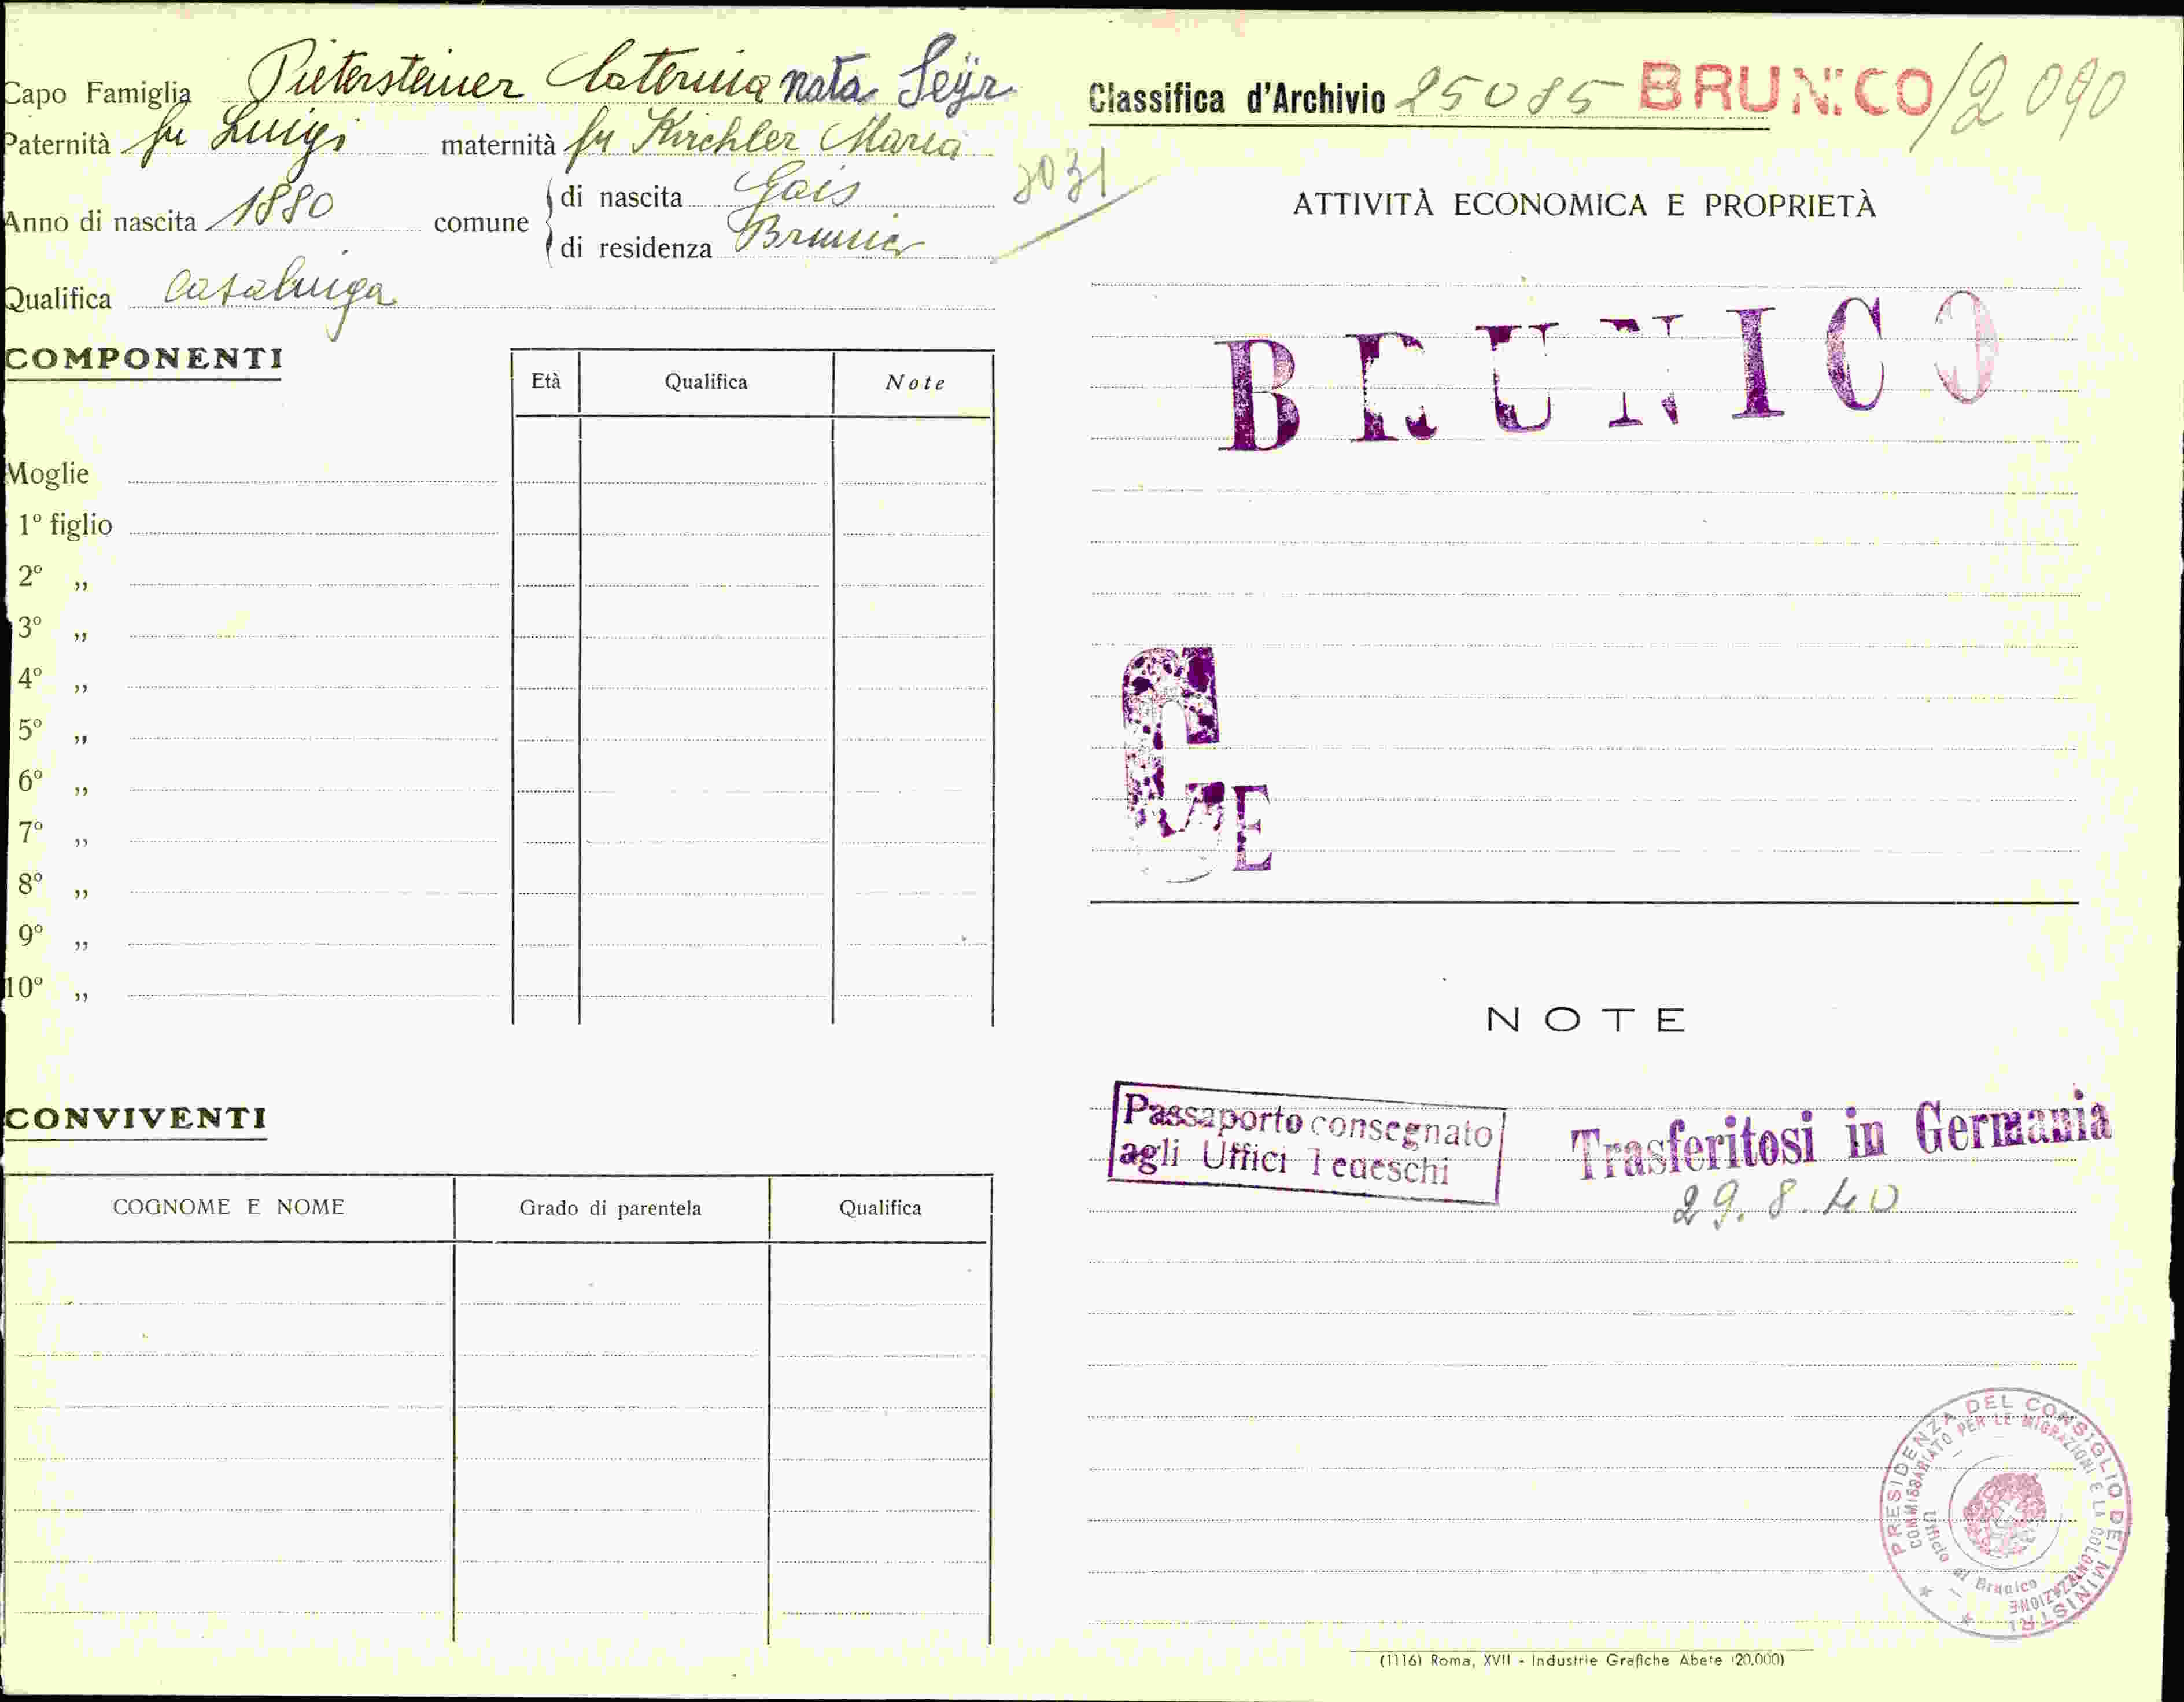 Capo Famiglia Pietersteiner Caterina nata Seÿr
Paternità fu Luigi maternità fu Kirchler Maria
Anno di nascita 1880 comune di nascita Gais
di residenza Brunico
Qualifica casalinga
COMPONENTI
Età Qualifica Note
Moglie
1º figlio
2º „
3º „
4º „
5º „
6º „
7º „
8º „
9º „
10º „
CONVIVENTI
COGNOME E NOME Grado di parentela Qualifica
Classifica d'Archivio 25085 BRUNICO/2090
2031
ATTIVITÀ ECONOMICA E PROPRIETÀ
BRUNICO
E
NOTE
Passaporto consegnato
agli Uffici Tedeschi
Trasferitosi in Germania
29.8.40
PRESIDENZA DEL CONSIGLIO DEI MINISTRI
COMMISSARIATO PER LE MIGRAZIONI E LA COLONIZZAZIONE
Ufficio di Brunico
(1116) Roma, XVII - Industrie Grafiche Abete (20.000)